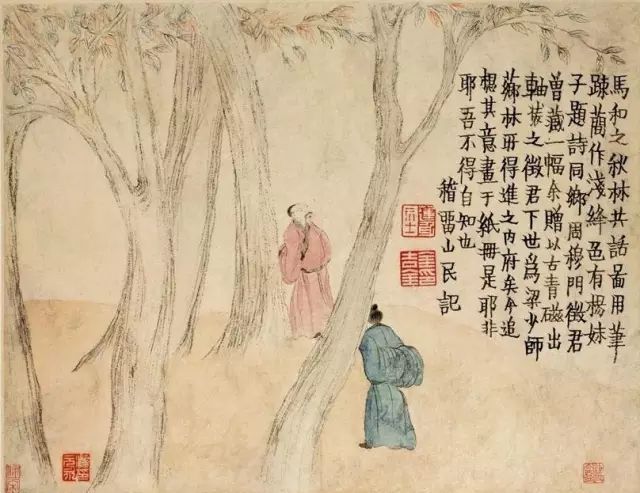 馬和之秋林共話啚用筆
踈蕳作淺絳色有楊妹
子題詩同鄉周穆門徵君
曾藏一幅余贈以古青磁出
軸裝之徵君下世爲梁少師
薌林所得進之内府矣今追
想其意畫于紙冊是耶非
耶吾不得自知也
稽畱山民記